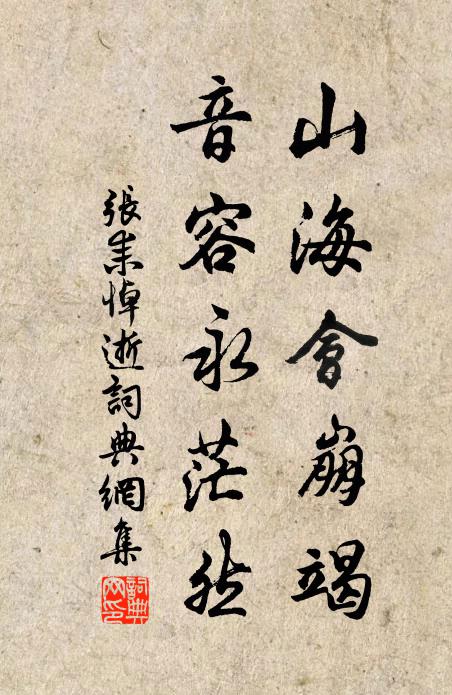 山海會崩竭
音容永茫然
張耒悼逝詞典網集
詞典網印